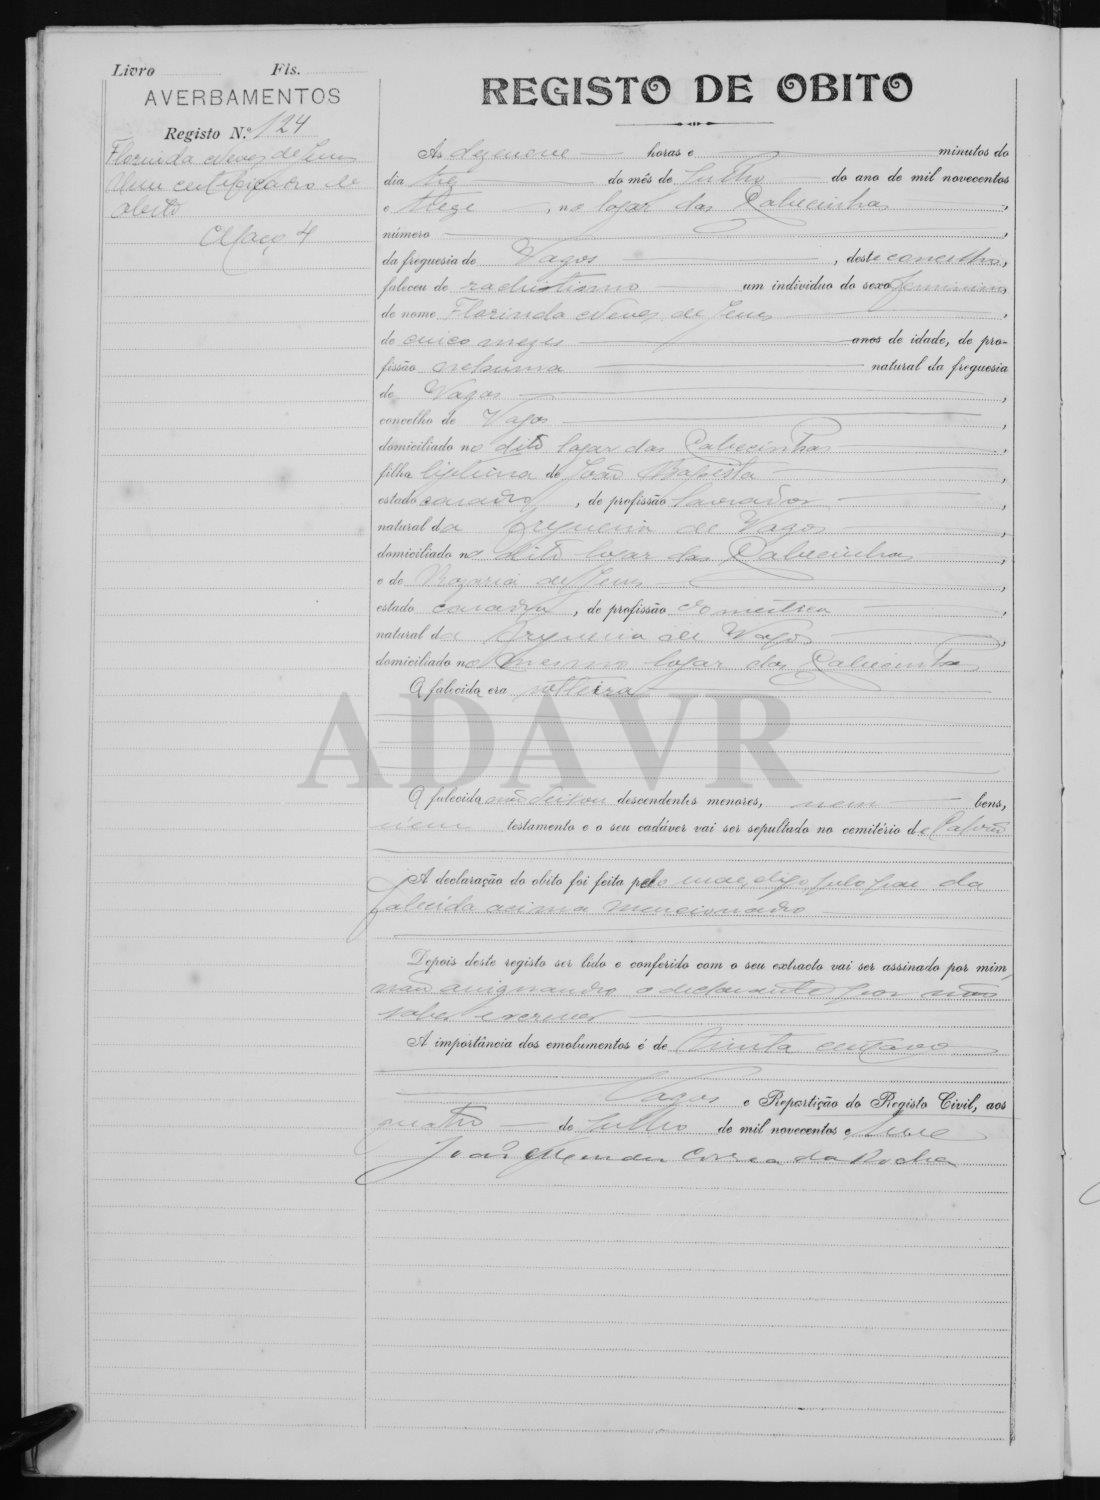 Livro Fls.
AVERBAMENTOS
Registo N.º 124
Florinda Neves de Jesus
Um certificado de
obito
Maço 4
REGISTO DE OBITO
Ás dezenove horas e minutos do
dia três do mês de Julho do ano de mil novecentos
e treze, no logar das Cabecinhas,
número ,
da freguesia de Vagos, deste concelho,
faleceu de rachitismo um individuo do sexo feminino
de nome Florinda Neves de Jesus,
de cinco mezes anos de idade, de pro-
fissão nehuma natural da freguesia
de Vagos,
concelho de Vagos,
domiciliado no dito logar das Cabecinhas,
filha legitima de João Baptista,
estado casado, de profissão lavrador,
natural da freguesia de Vagos,
domiciliado no dito logar das Cabecinhas,
e de Rozaria de Jesus,
estado casada, de profissão domestica,
natural da freguesia de Vagos,
domiciliado no mesmo logar das Cabecinhas
A falecida era solteira
ADAVR
A falecida não deixou descendentes menores, nem bens,
nem testamento e o seu cadáver vai ser sepultado no cemitério de Calvão
A declaração do obito foi feita pela mae, digo, pelo pae da
falecida acima mencionado
Depois deste registo ser lido e conferido com o seu extracto vai ser assinado por mim,
não assignando o declarante por não
saber escrever
A importância dos emolumentos é de trinta centavos
Vagos e Repartição do Registo Civil, aos
quatro de Julho de mil novecentos e treze
João Mendes Correa da Rocha